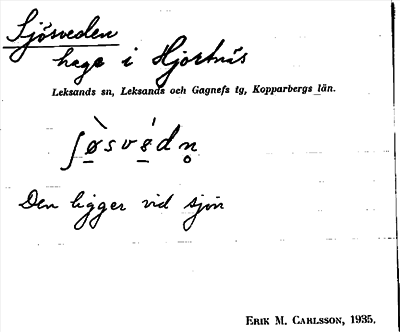 Sjösveden
hage i Hjortnäs
Leksands sn, Leksands och Gagnefs tg, Kopparbergs län.
ʃø̀svɛ́dn̥
Den ligger vid sjön
ERIK M. CARLSSON, 1935.